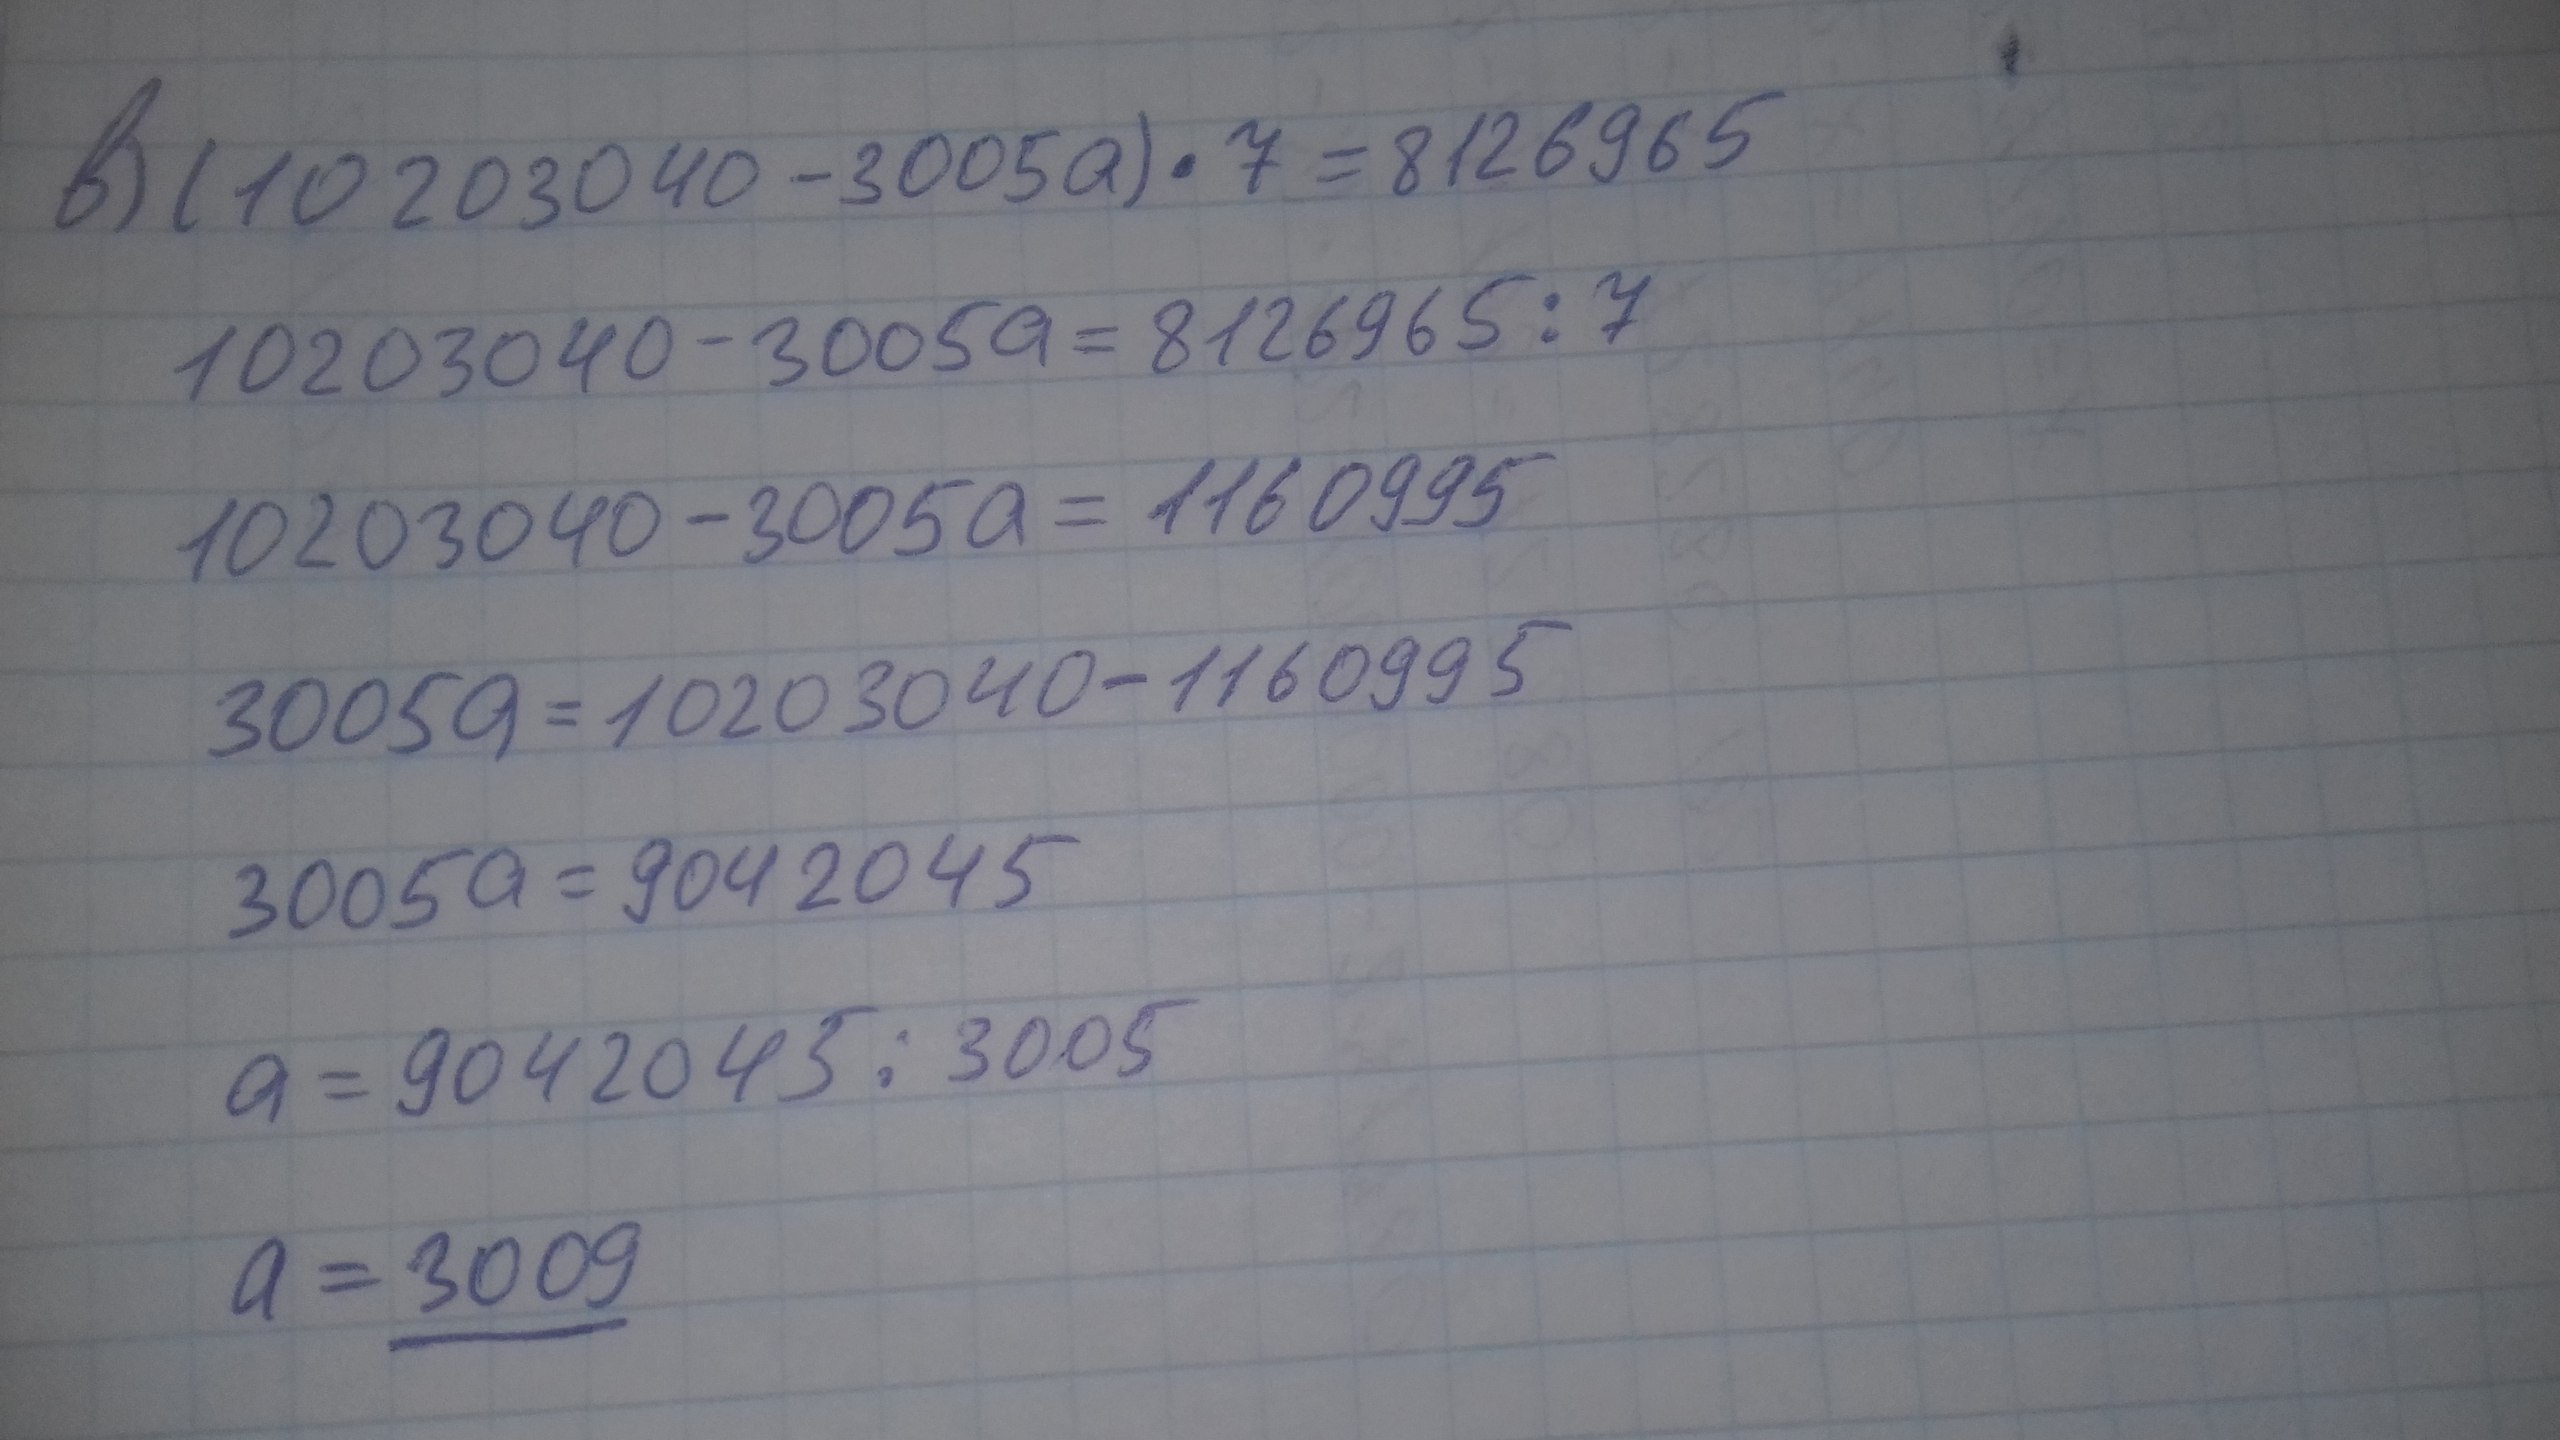 в) (10203040-3005a)·7=8126965
10203040-3005a=8126965:7
10203040-3005a=1160995
3005a=10203040-1160995
3005a=9042045
a=9042045:3005
a=3009